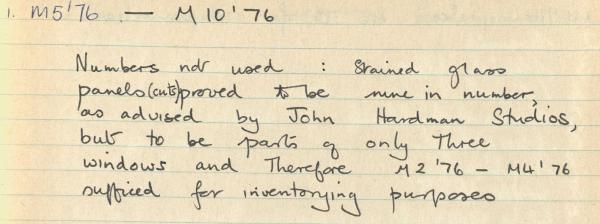 1. M5'76 — M10'76
Numbers not used : Stained glass
panels (cuts) proved to be nine in number,
as advised by John Hardman Studios,
but to be parts of only three
windows and therefore M2'76 - M4'76
sufficed for inventorying purposes